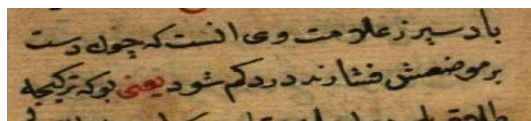 باد سپرز علامت وی انست که چون دست
بر موضعش فشارند درد کم شود یعنی بوکه ترکیجه